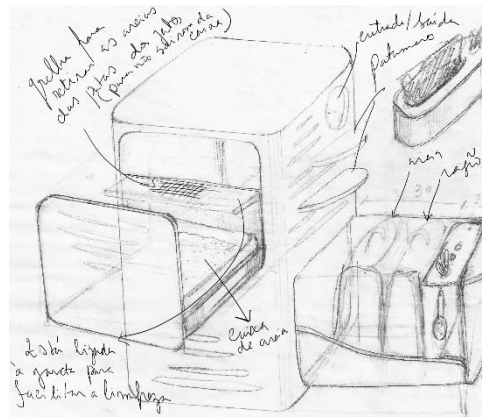 grelha para
retirar as areias
das patas dos gatos
(para não saírem da
caixa)
entrada/saída
Patamares
areia
ração
30
caixa
de areia
Está ligada
à gaveta para
facilitar a limpeza